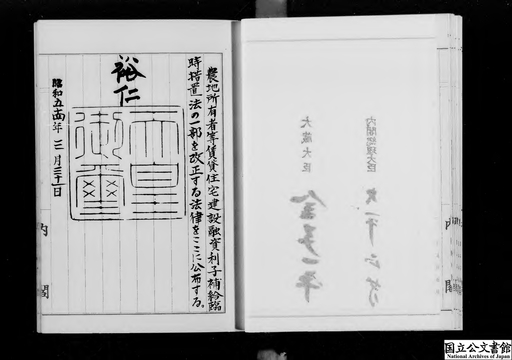 内閣総理大臣
大平正芳
大蔵大臣
金子一平
内閣
農地所有者等賃貸住宅建設融資利子補給臨
時措置法の一部を改正する法律をここに公布する。
裕仁
天皇
御璽
昭和五十四年三月三十一日
内閣
国立公文書館
National Archives of Japan